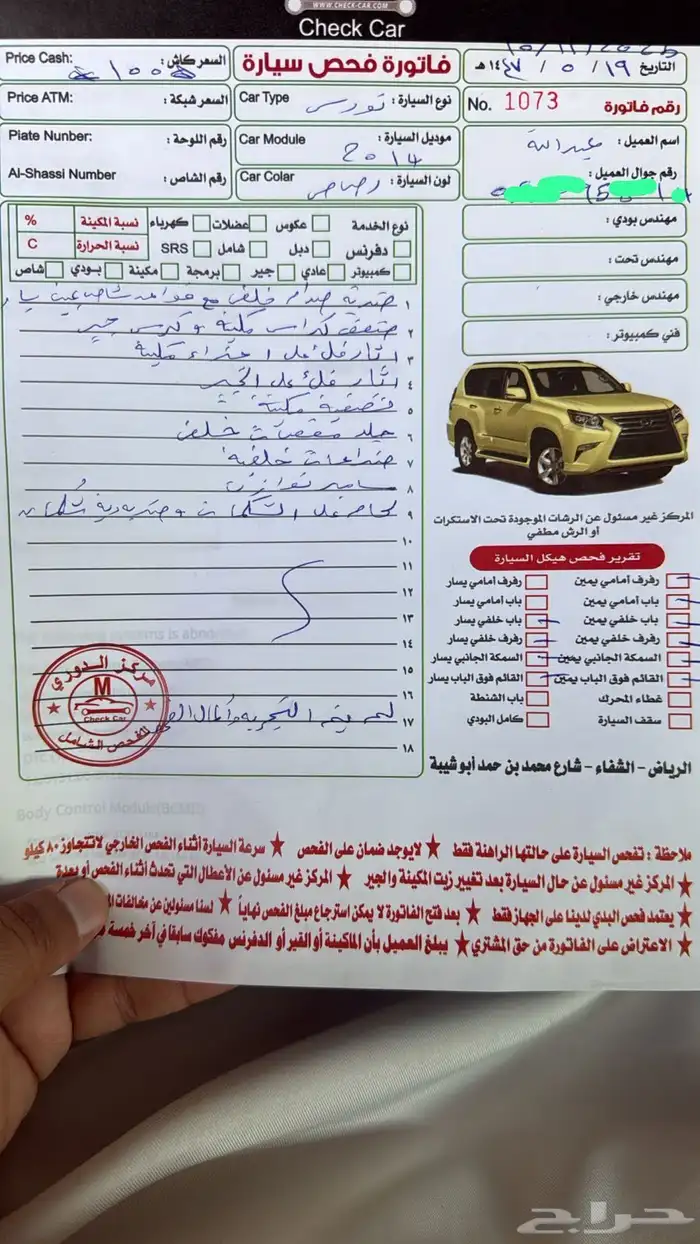 WWW.CHECK-CAR.COM
Check Car
Price Cash: السعر كاش: ١٠٠
فاتورة فحص سيارة
التاريخ ١٩ / ٥ / ١٤٤٧ هـ
Price ATM: السعر شبكة:
Car Type نوع السيارة: تورس
No. 1073 رقم فاتورة
Piate Nunber: رقم اللوحة:
Car Module موديل السيارة: 2014
اسم العميل: عبدالله
Al-Shassi Number رقم الشاص:
Car Colar لون السيارة: رصاصي
رقم جوال العميل:
نوع الخدمة عكوس عضلات كهرباء نسبة المكينة %
دفرنس دبل شامل SRS نسبة الحرارة C
كمبيوتر عادي جير برمجة مكينة بودي شاص
مهندس بودي:
مهندس تحت:
مهندس خارجي:
فني كمبيوتر:
١ ضربة صدام خلفي مع قواعد شاص يمين يسار
٢ ضعف كراسي مكينة وكرسي جير
٣ اثار فك على اجزاء مكينة
٤ اثار فك على الجير
٥ مكينة
٦ جلد مقصات خلفي
٧ خلفية
٨ مسامير توازن
٩ لحام على الشكمان
١٠
١١
١٢
١٣
١٤
١٥
١٦
١٧
١٨
مركز الدوري
M
Check Car
للفحص الشامل
المركز غير مسئول عن الرشات الموجودة تحت الاستكرات
أو الرش مطفي
تقرير فحص هيكل السيارة
رفرف أمامي يمين رفرف أمامي يسار
باب أمامي يمين باب أمامي يسار
باب خلفي يمين باب خلفي يسار
رفرف خلفي يمين رفرف خلفي يسار
السمكة الجانبي يمين السمكة الجانبي يسار
القائم فوق الباب يمين القائم فوق الباب يسار
غطاء المحرك باب الشنطة
سقف السيارة كامل البودي
الرياض - الشفاء - شارع محمد بن حمد أبو شيبة
Body Control Module(BCM)
ملاحظة : تفحص السيارة على حالتها الراهنة فقط ★ لايوجد ضمان على الفحص ★ سرعة السيارة أثناء الفحص الخارجي لاتتجاوز ٨٠ كيلو
★ المركز غير مسئول عن حال السيارة بعد تغيير زيت المكينة والجير ★ المركز غير مسئول عن الأعطال التي تحدث أثناء الفحص أو بعدة
★ يعتمد فحص البدي لدينا على الجهاز فقط ★ بعد فتح الفاتورة لا يمكن استرجاع مبلغ الفحص نهاياً ★ لسنا مسئولين عن مخالفات
★ الاعتراض على الفاتورة من حق المشتري ★ يبلغ العميل بأن الماكينة أو القير أو الدفرنس مفكوك سابقا في أخر خمسة
حراج